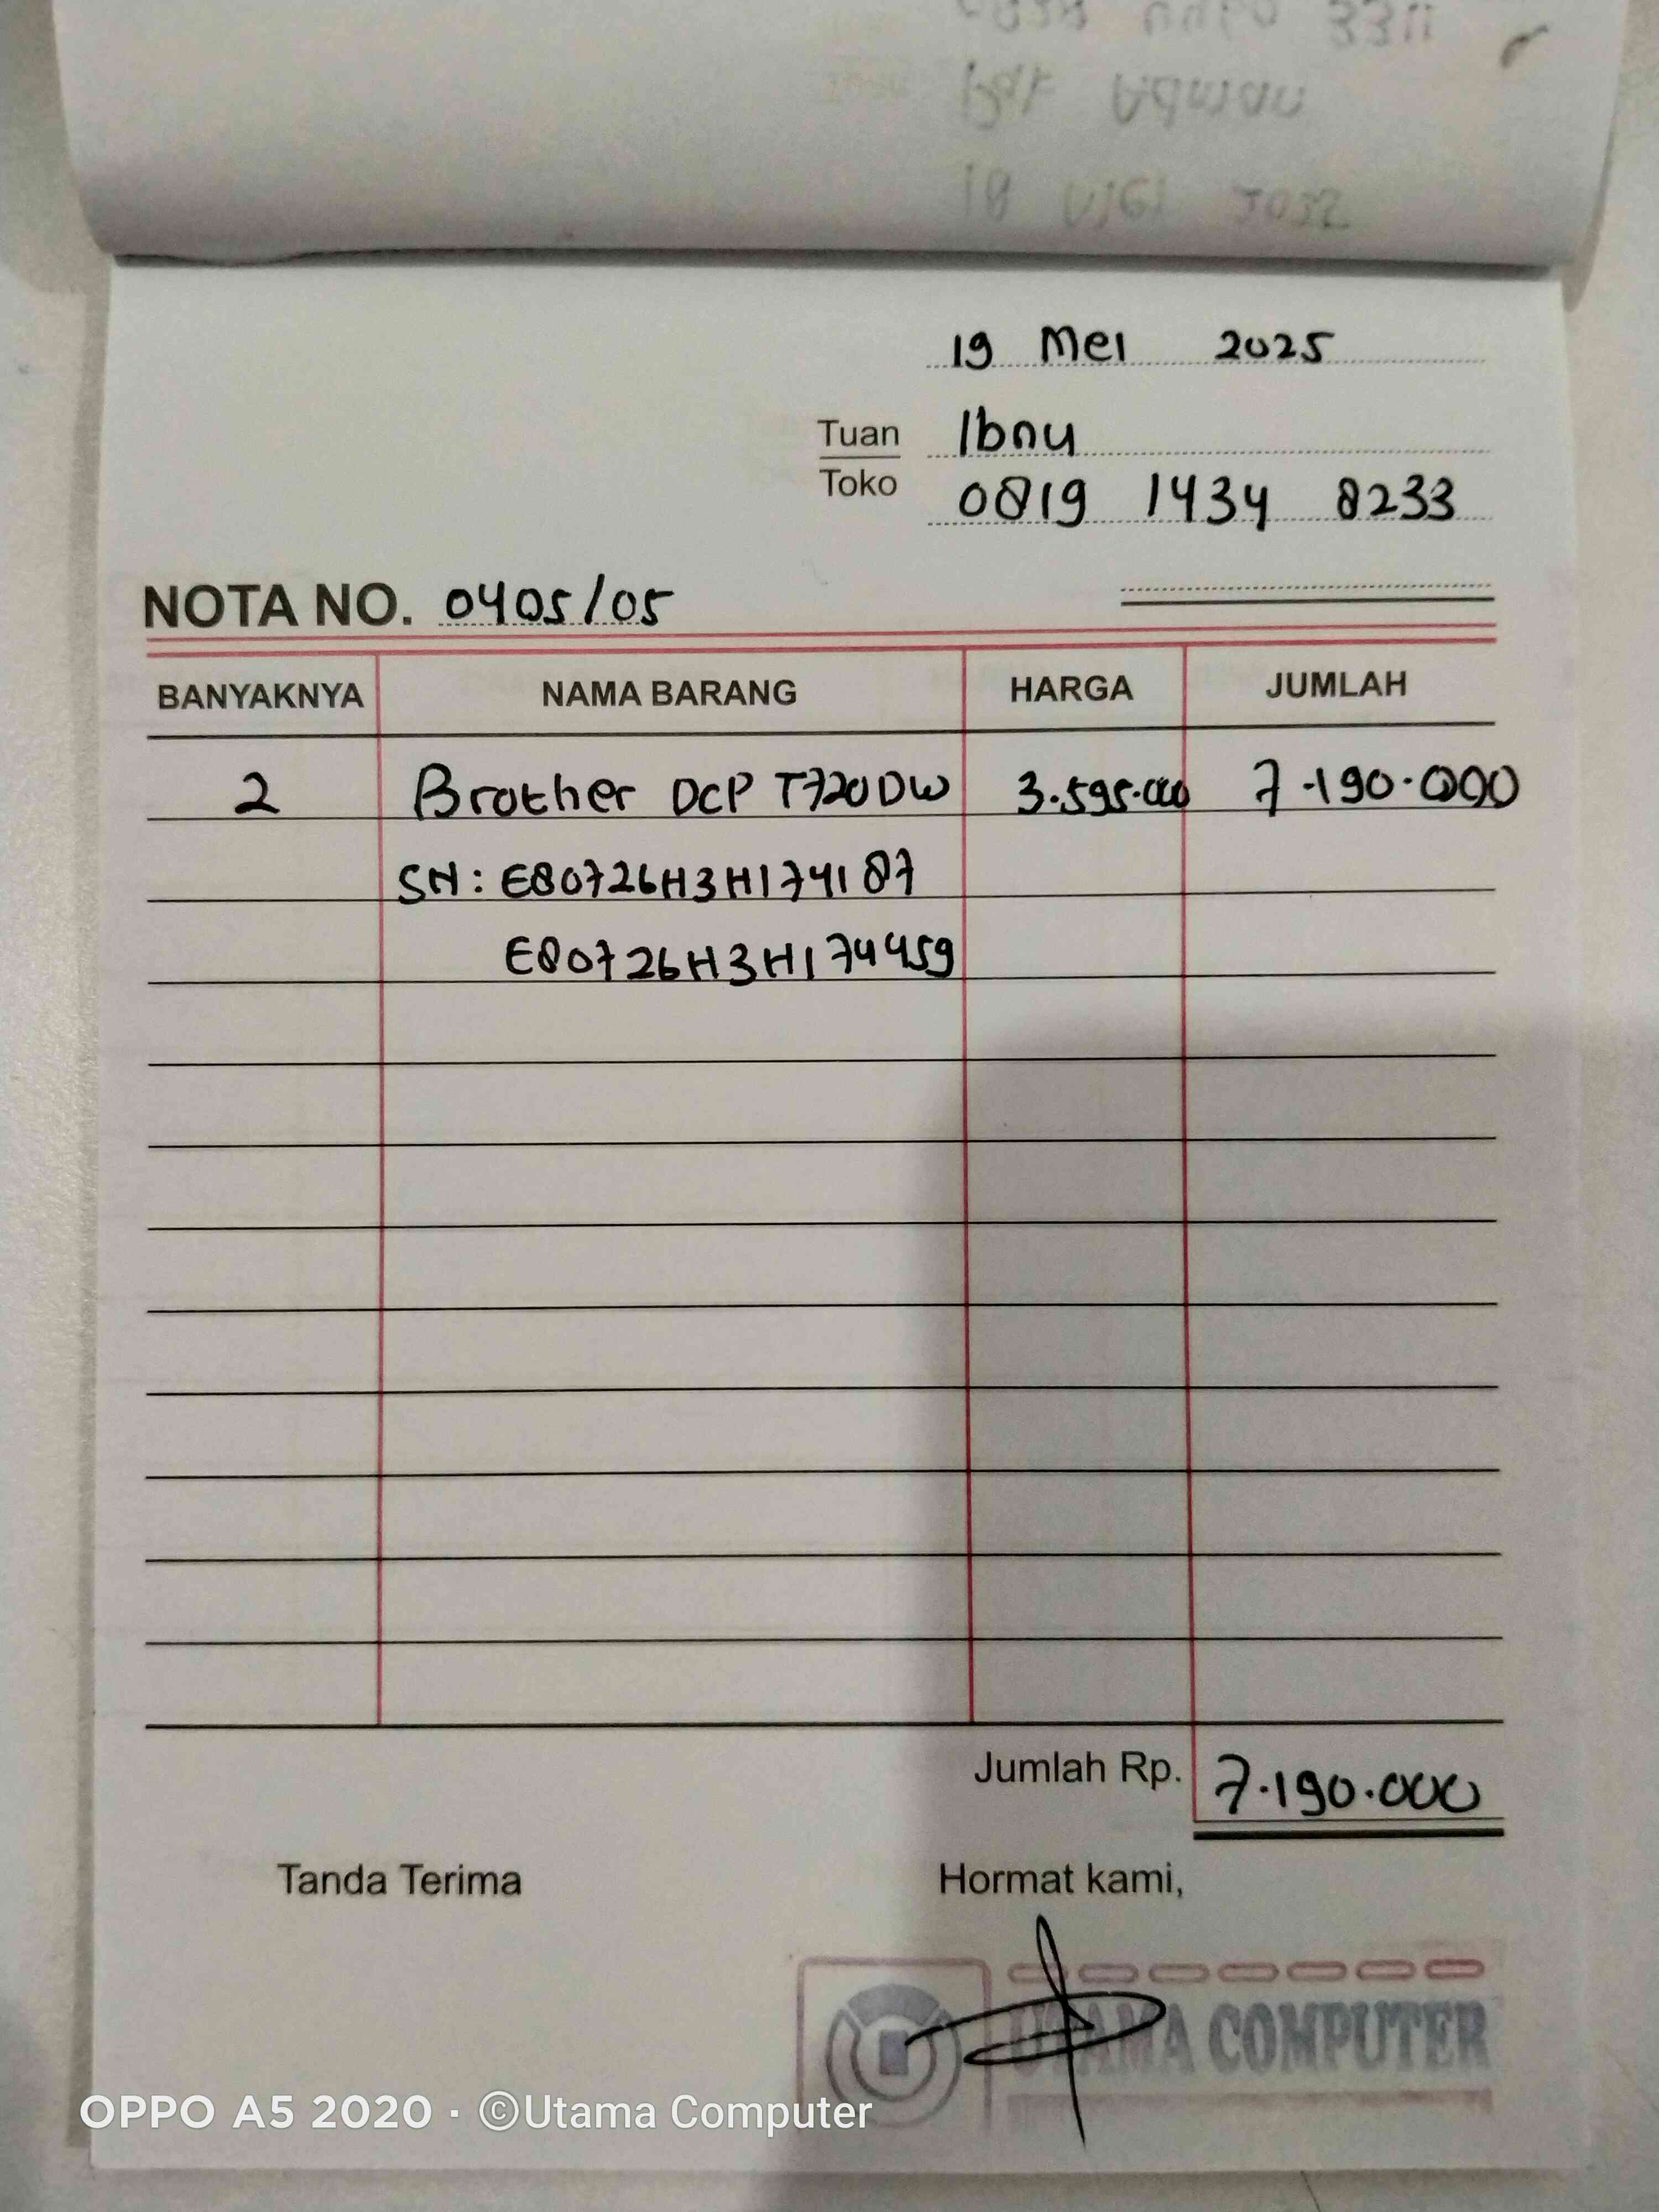 19 Mei 2025
Tuan Ibnu
Toko 0819 1434 8233
NOTA NO. 0405/05
BANYAKNYA NAMA BARANG HARGA JUMLAH
2 Brother DCP T720DW 3.595.000 7.190.000
SN: E80726H3H174187
E80726H3H174459
Jumlah Rp. 7.190.000
Tanda Terima Hormat kami,
UTAMA COMPUTER
OPPO A5 2020 · ©Utama Computer